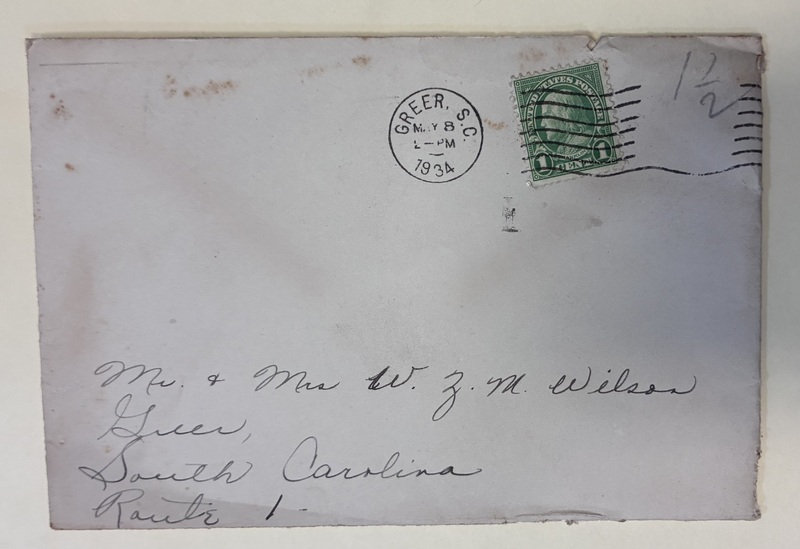 GREER, S.C.
MAY 8
PM
1934
UNITED STATES POSTAGE
1 CENT 1
1 1/2
Mr. & Mrs W. Z. M. Wilson
Greer,
South Carolina
Route 1-